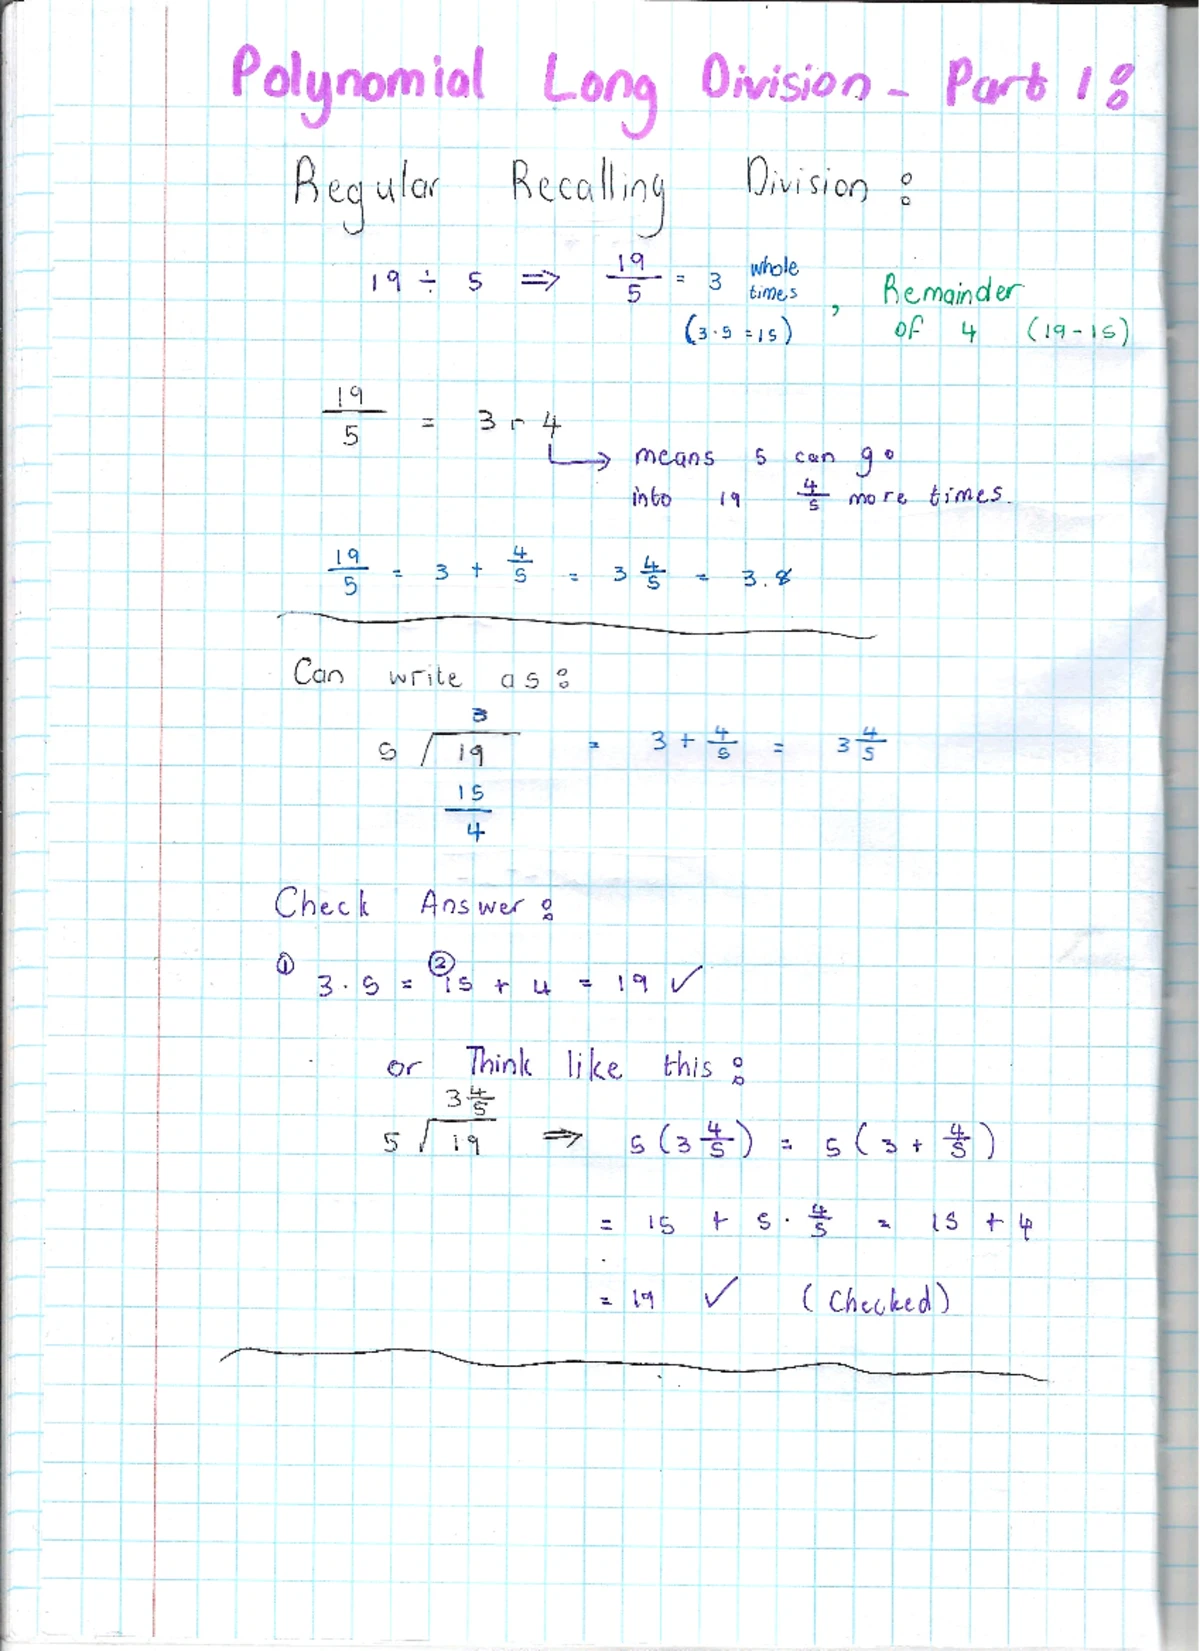 Polynomial Long Division - Part 1:
Regular Recalling Division:
19 ÷ 5 ⇒ 19/5 = 3 whole times (3·5 = 15), Remainder of 4 (19-15)
19/5 = 3 r 4
↳ means 5 can go
into 19 4/5 more times.
19/5 = 3 + 4/5 = 3 4/5 = 3.8
Can write as:
3
5 √19 = 3 + 4/5 = 3 4/5
15
4
Check Answer:
① 3·5 = ② 15 + 4 = 19 ✓
or Think like this:
3 4/5
5 √19 ⇒ 5(3 4/5) = 5(3 + 4/5)
= 15 + 5·4/5 = 15 + 4
= 19 ✓ (Checked)